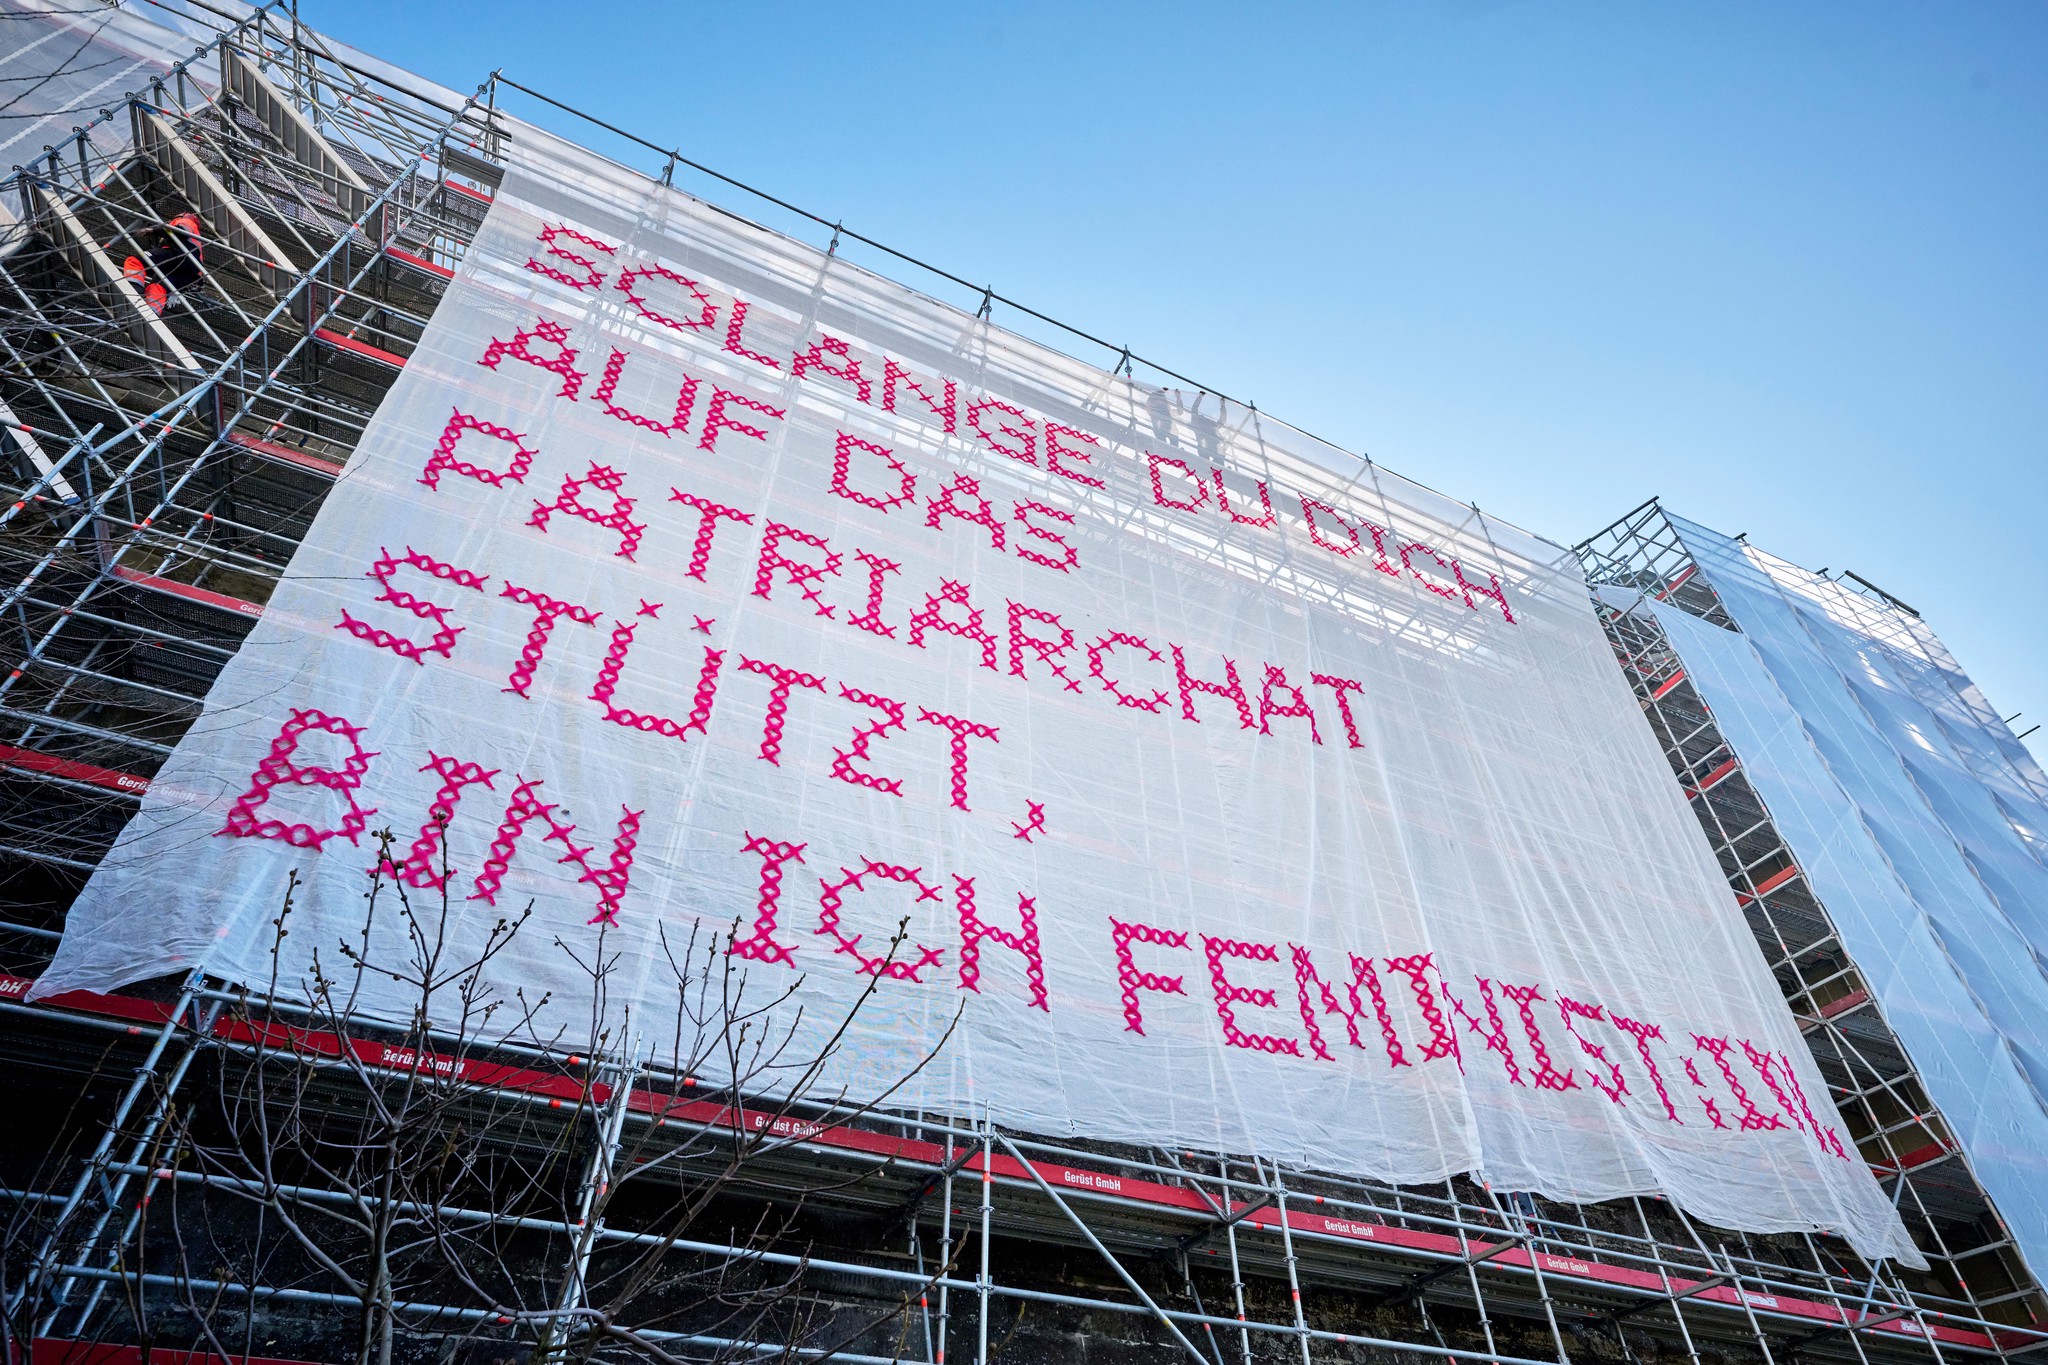 SOLANGE DU DICH
AUF DAS
PATRIARCHAT
STÜTZT,
BIN ICH FEMINISTIN.
Gerüst GmbH
Gerüst GmbH
Gerüst GmbH
Gerüst GmbH
Gerüst GmbH
Gerüst GmbH